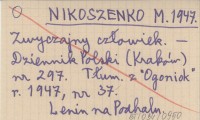 NIKOSZENKO M. 1947.
Zwyczajny człowiek. —
Dziennik Polski (Kraków)
nr 297. Tłum. z "Ogoniok"
r. 1947, nr 37.
Lenin na Podhalu.